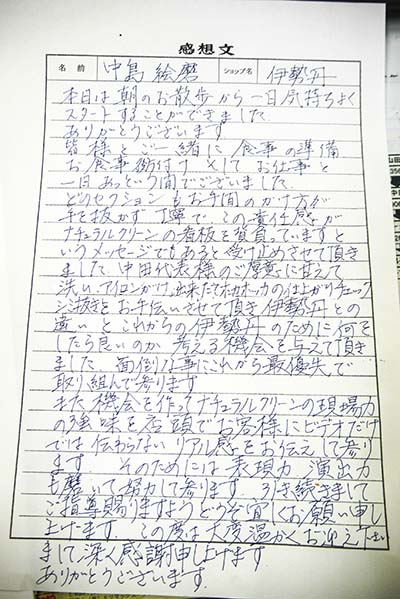 感想文
名前 中島 絵磨 ショップ名 伊勢丹
本日は朝のお散歩から一日気持ちよく
スタートすることができました
ありがとうございます
皆様とご一緒に食事の準備
お食事 御片付け そしてお仕事と
一日あっという間でございました
どのセクションもお手間のかけ方が
手を抜かず丁寧で この責任感が
ナチュラルクリーンの看板を背負っていますと
いうメッセージでもあると受け止めさせて頂き
ました 中田代表様のご厚意に甘えて
洗い、アイロンがけ、出来たてホカホカの仕上がりチェック
シミ抜きをお手伝いさせて頂き 伊勢丹との
違いと これからの伊勢丹のために何を
したら良いのか 考える機会を与えて頂き
ました 面倒な事にこれから最優先で
取り組んで参ります
また機会を作ってナチュラルクリーンの現場力
の強味を店頭でお客様にビデオだけ
では伝わらないリアル感をお伝えして参り
ます そのためには表現力 演出力
も磨いて努力して参ります 引き続きまして
ご指導賜りますようどうぞ宜しくお願い申し
上げます この度は大変温かくお迎え下さい
まして深く感謝申し上げます
ありがとうございます